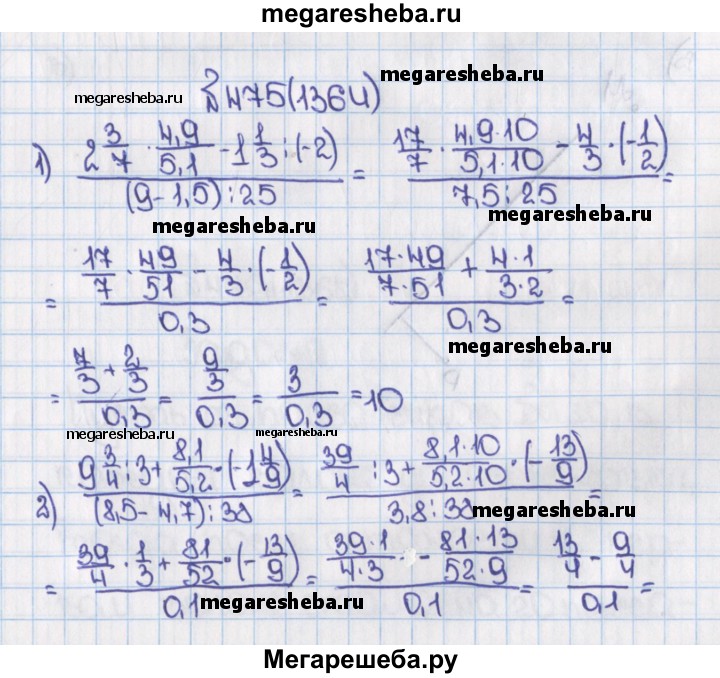 megaresheba.ru
megaresheba.ru
megaresheba.ru №475(1364)
1) (2 3/7 · 4,9/5,1 - 1 1/3 : (-2)) / ((9-1,5):25) = (17/7 · 4,9·10/5,1·10 - 4/3 · (-1/2)) / (7,5:25) =
megaresheba.ru megaresheba.ru
= (17/7 · 49/51 - 4/3 · (-1/2)) / 0,3 = (17·49/7·51 + 4·1/3·2) / 0,3 =
megaresheba.ru
= (7/3 + 2/3) / 0,3 = (9/3) / 0,3 = 3 / 0,3 = 10
megaresheba.ru megaresheba.ru
2) (9 3/4 : 3 + 8,1/5,2 · (-1 4/9)) / ((8,5-4,7):38) = (39/4 : 3 + 8,1·10/5,2·10 · (-13/9)) / (3,8:38) =
megaresheba.ru
= (39/4 · 1/3 + 81/52 · (-13/9)) / 0,1 = (39·1/4·3 - 81·13/52·9) / 0,1 = (13/4 - 9/4) / 0,1 =
megaresheba.ru
Мегарешеба.ру